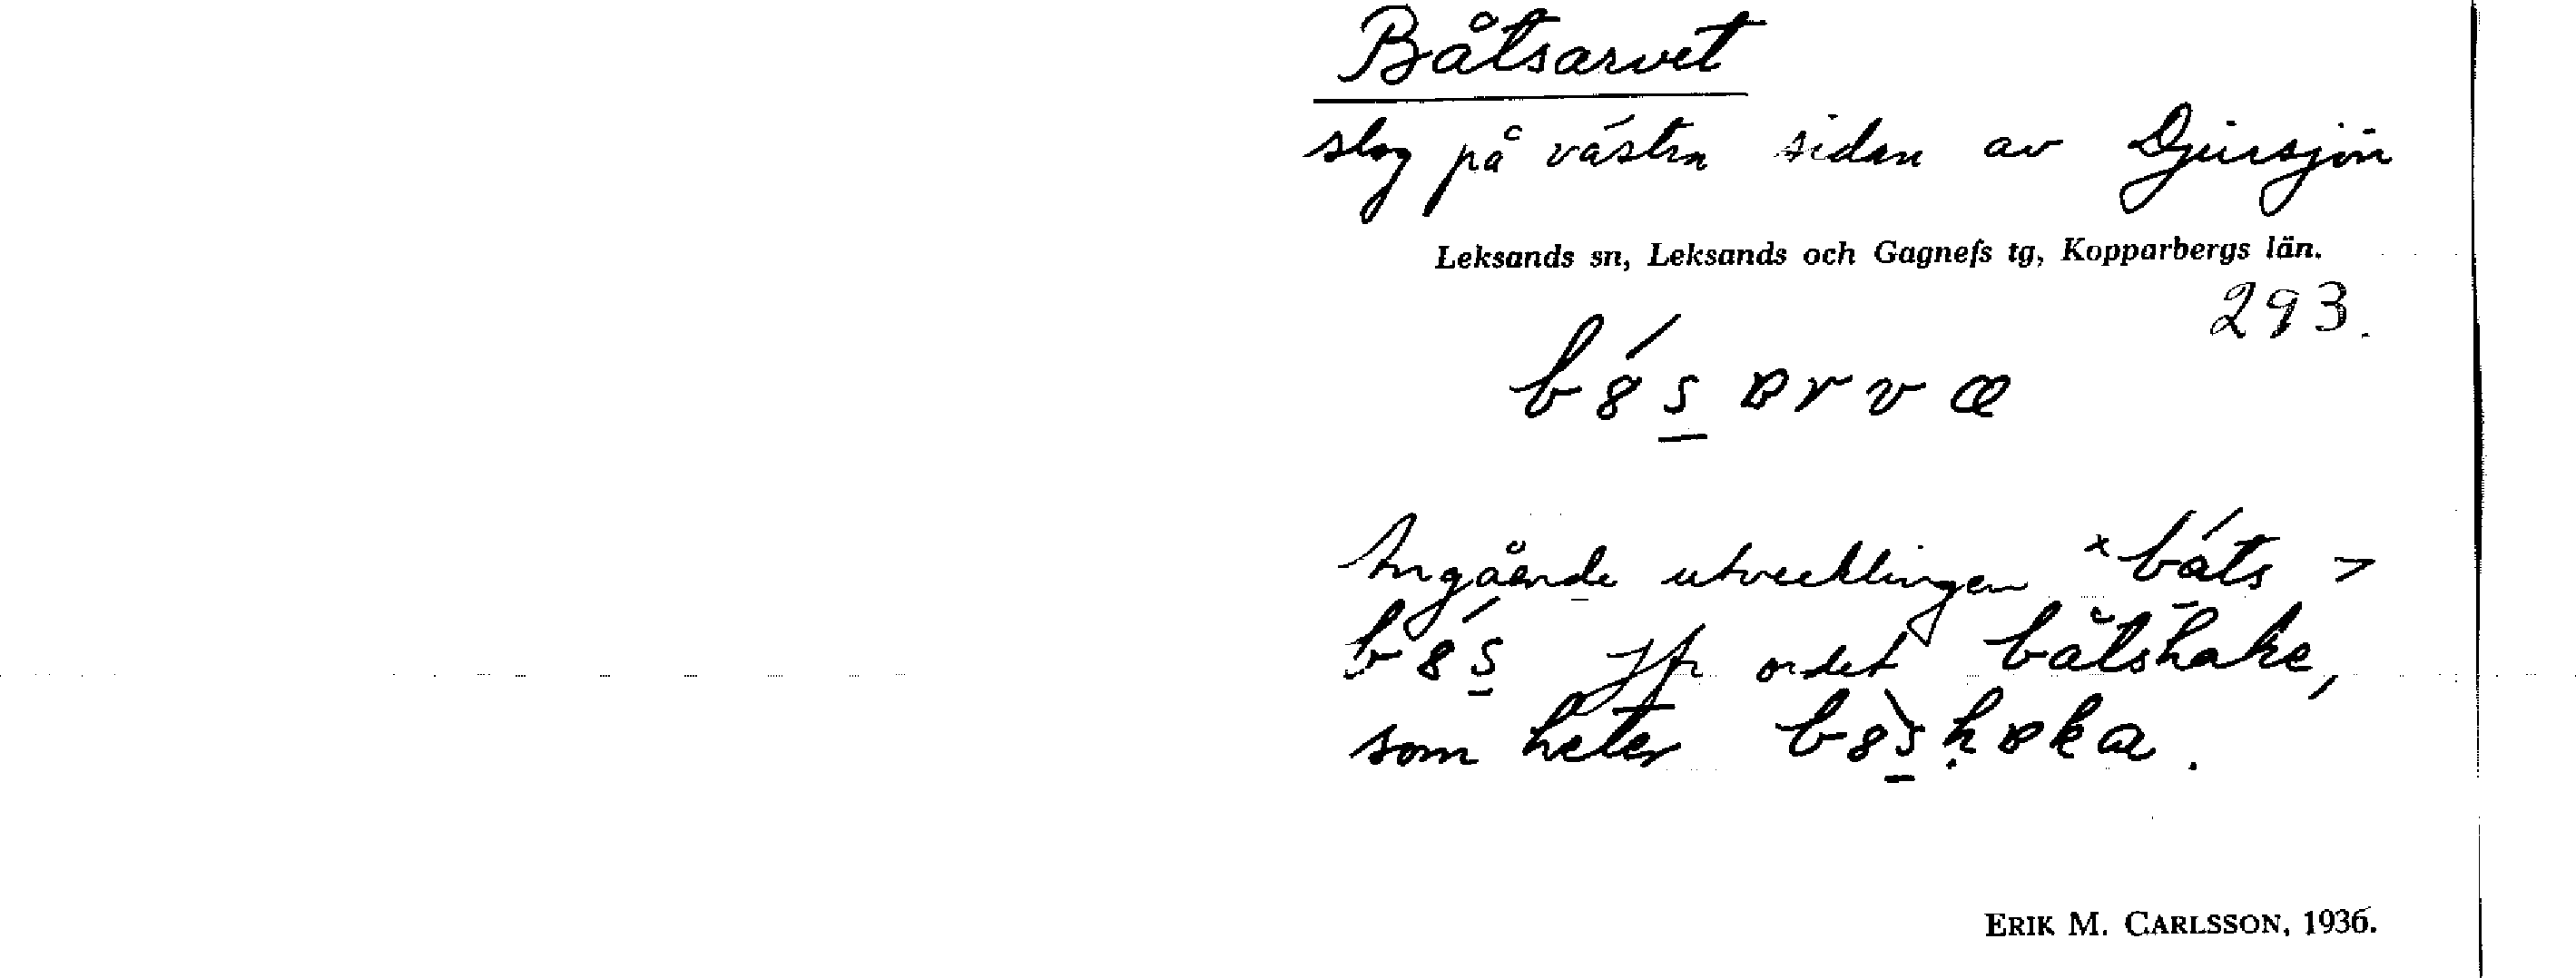 Båtsarvet
slog på västra sidan av Djursjön
Leksands sn, Leksands och Gagnefs tg, Kopparbergs län.
293.
b8́s̲ɒrvæ
Angående utvecklingen ˣbáts >
b8́s̲ Jfr ordet båtshake,
som heter b8̀s̲ḥɒka.
ERIK M. CARLSSON, 1936.